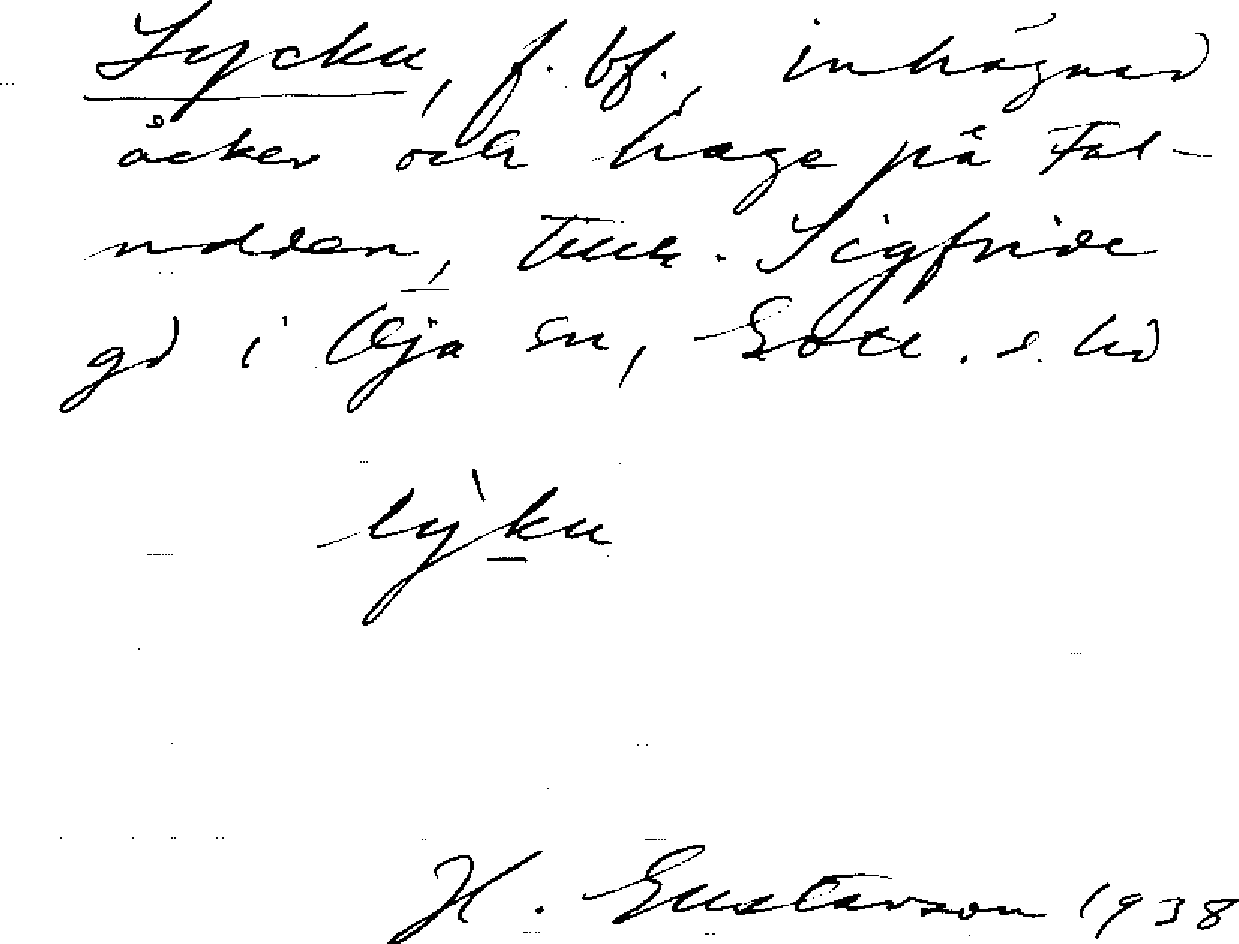 Lycku, f. bf., inhägnad
åcker och hage på Fal-
udden, tillh. Sigfride
gd i Öja sn, Gotl. s. hd
lỳku
H. Gustavson 1938